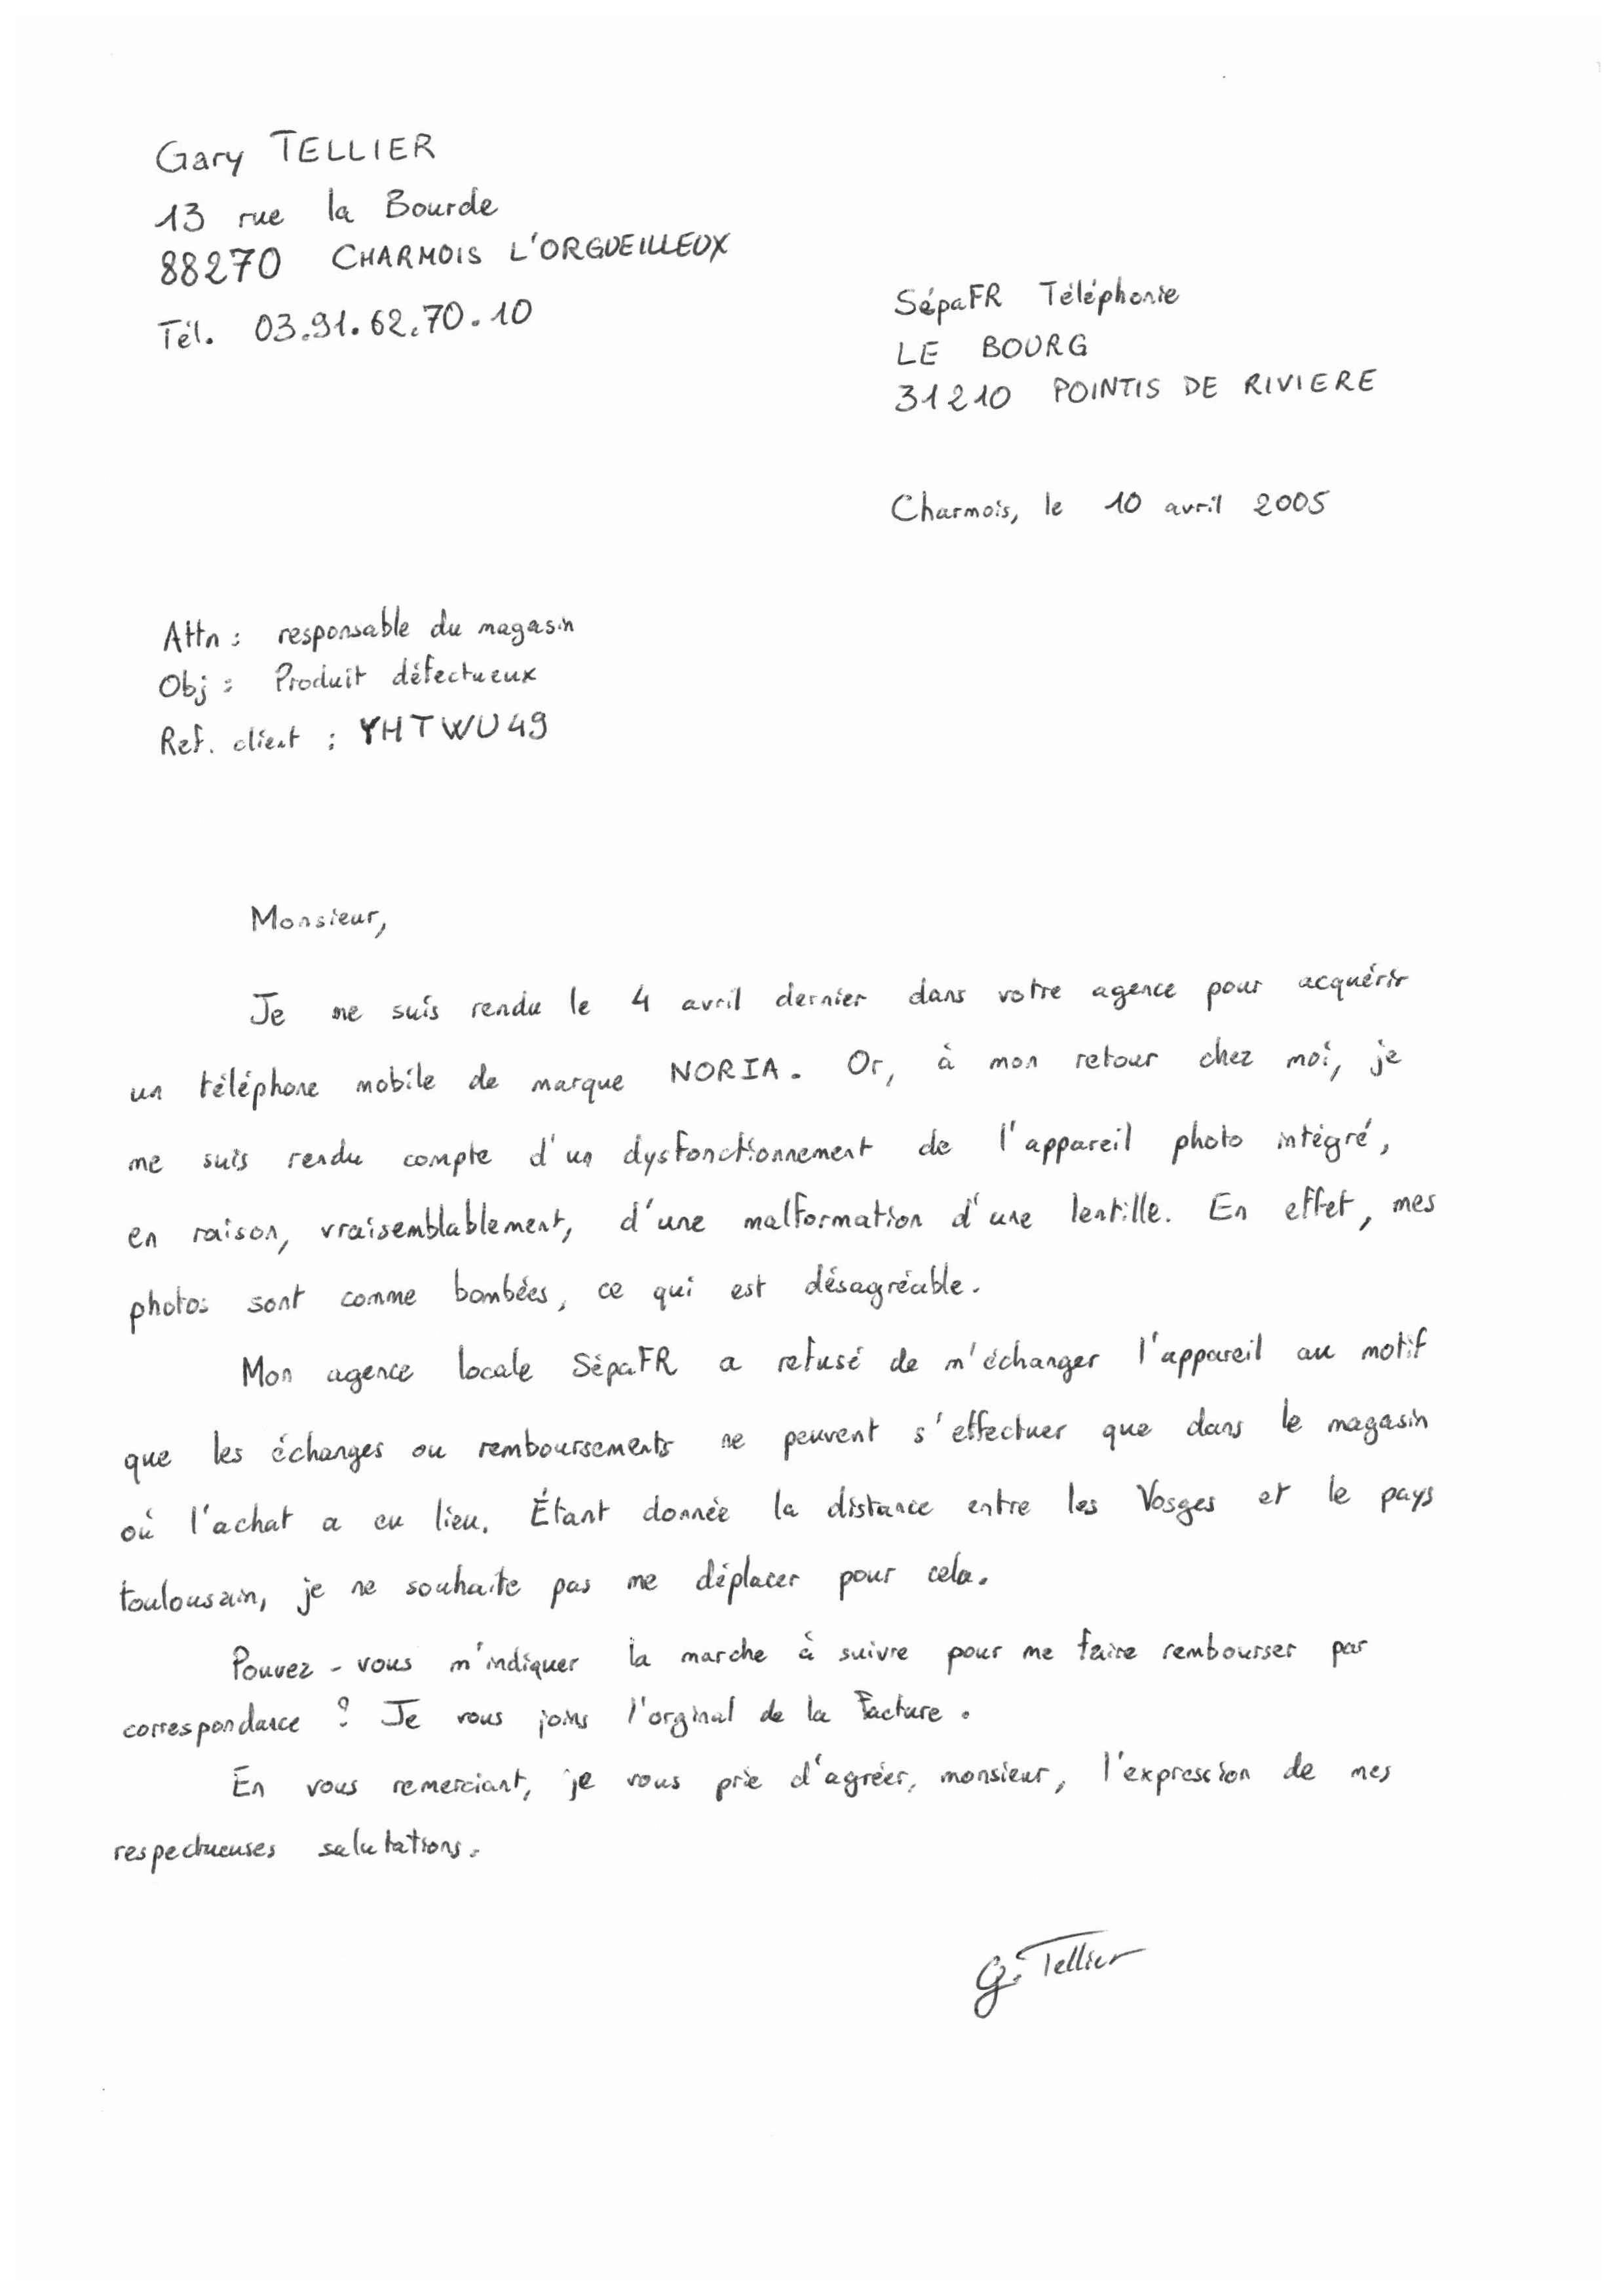 Gary TELLIER
13 rue la Bourde
88270 CHARMOIS L'ORGUEILLEUX
Tél. 03.91.62.70.10
SépaFR Téléphonie
LE BOURG
31210 POINTIS DE RIVIERE
Charmois, le 10 avril 2005
Attn : responsable du magasin
Obj : Produit défectueux
Ref. client : YHTWU49
Monsieur,
Je me suis rendu le 4 avril dernier dans votre agence pour acquérir
un téléphone mobile de marque NORIA. Or, à mon retour chez moi, je
me suis rendu compte d'un dysfonctionnement de l'appareil photo intégré,
en raison, vraisemblablement, d'une malformation d'une lentille. En effet, mes
photos sont comme bombées, ce qui est désagréable.
Mon agence locale SépaFR a refusé de m'échanger l'appareil au motif
que les échanges ou remboursements ne peuvent s'effectuer que dans le magasin
où l'achat a eu lieu. Étant donnée la distance entre les Vosges et le pays
toulousain, je ne souhaite pas me déplacer pour cela.
Pouvez-vous m'indiquer la marche à suivre pour me faire rembourser par
correspondance ? Je vous joins l'orginal de la facture.
En vous remerciant, je vous prie d'agréer, monsieur, l'expression de mes
respectueuses salutations.
G. Tellier